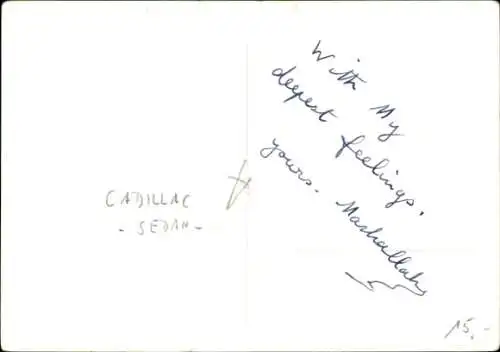 With My
deepest feelings.
yours. Mashallah
CADILLAC
- SEDAN -
15,-